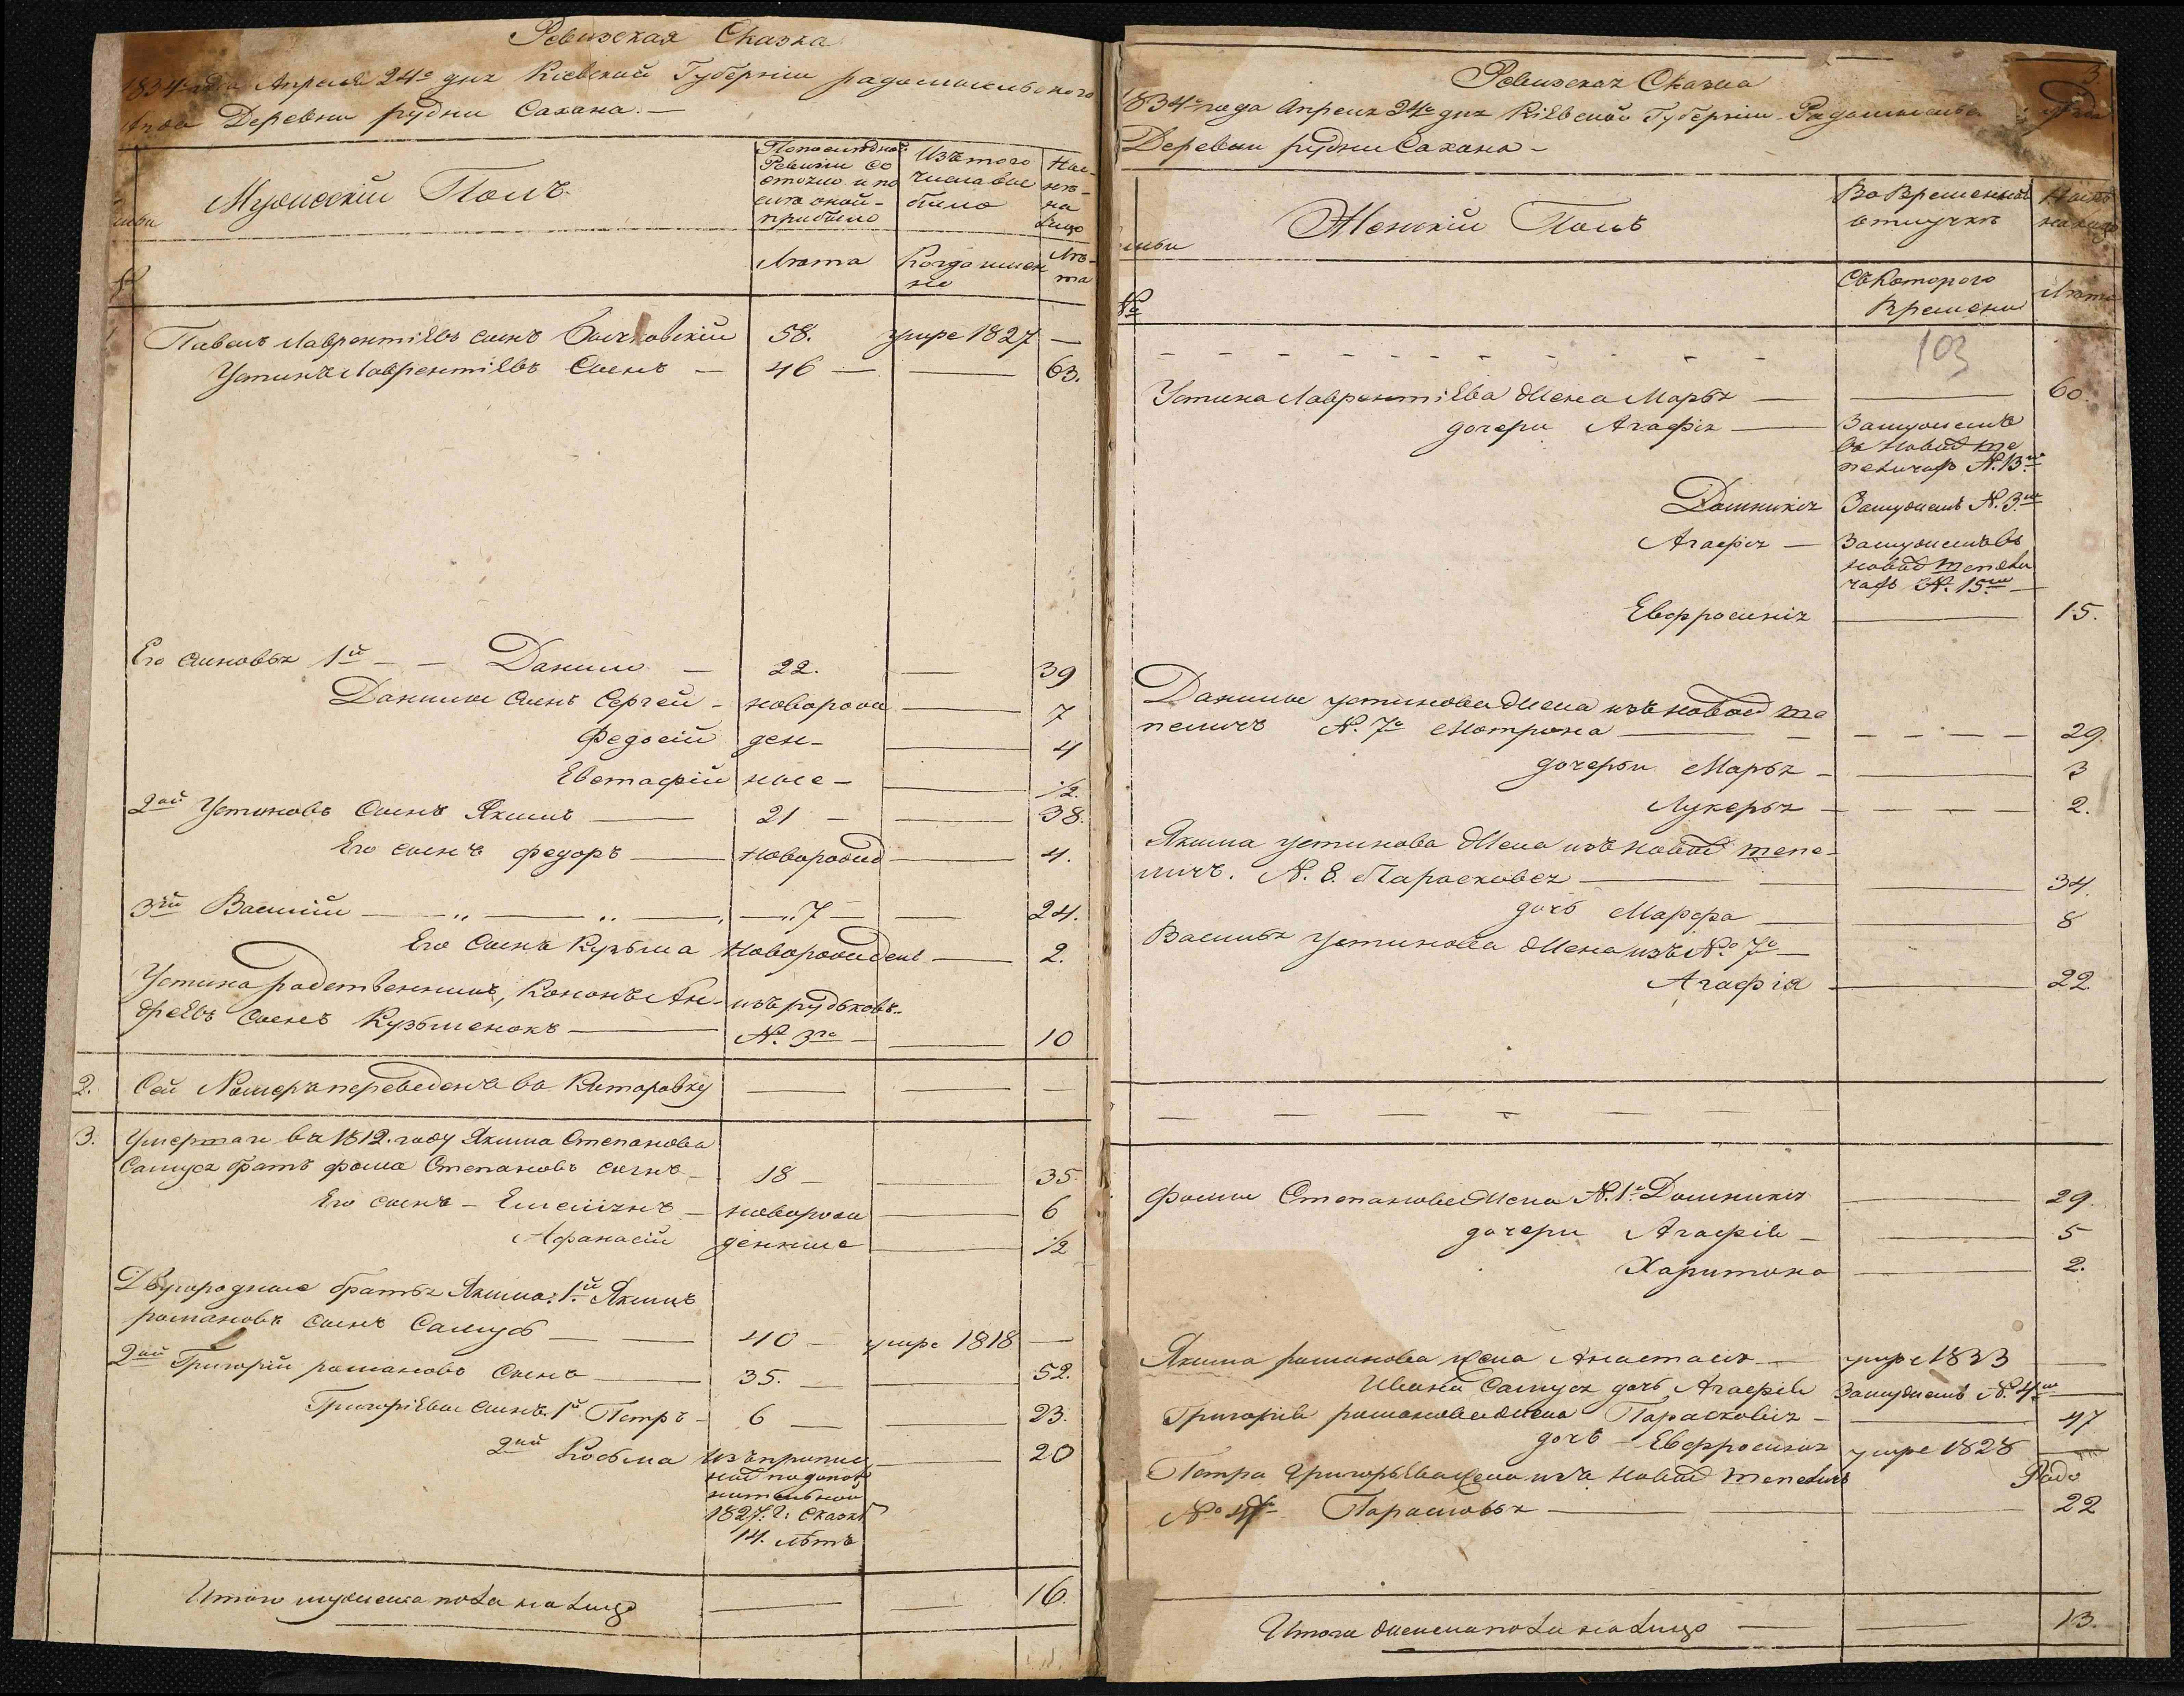 Ревизская Сказка
1834 года Апреля 24го дня Киевской Губернии радомысльского
Деревни рудни Сахана. —
Мужескій Полъ.
По последней Ревизіи состояло и после оной прибыло
Изъ того числа выбыло
Ныне на лицо
Лѣта
Когда именно
Лѣта
Павелъ Лаврентіевъ сынъ 58. умре 1827 —
Устинъ Лаврентіевъ Сынъ — 46 — — 63.
Его сыновья 1й — — Данило — 22. — 39
Данилы Сынъ Сергей — новорож — 7
Федосій ден- — 4
Евстафій ные — — 1/2
2ой Устиновъ Сынъ Якимъ — 21 — — 38.
Его сынъ федоръ — Новорожд — 4.
3ій Василій — „ — „ — „ 7 — — 24.
Его Сынъ Кузьма Новорожденъ — 2.
Устина родственникъ, Кононъ Ан- изъ рудьковъ
дреевъ Сынъ Кузьменокъ — № 3го — — 10
2. Сей Номеръ переведенъ во Каторовку — — —
3. Умершаго въ 1812. году Якима Степанова
Самуся братъ фома Степановъ сынъ — 18 — — 35
Его сынъ — Емеліянъ — новорож — 6
Афанасій денные — 1/2
Двуюродные братья Якима: 1й Якимъ
романовъ сынъ Самусь — — 40 — умре 1818 —
2ой Григорій романовъ Сынъ — 35. — — 52.
Григоріевы сынъ 1й Петръ — 6 — — 23.
2ой Козьма изъ припис — 20
ной по допол
нительной
1827. г: сказкѣ
14. лѣтъ
Итого мужеска пола на лицо — — 16.
3
Ревизская Сказка
1834го года Апреля 24го дня Кіевской Губерніи Радомысльс
Деревни рудни Сахана —
Женскій Полъ
Во Временной отлучкѣ
Ныне на лицо
№
Съ Котораго Времени
Лѣта
103
Устина Лаврентіева Жена Марья — — 60.
дочери Агафія — Замужемъ
въ новой те
пеличах №. 13м
Домникія Замужемъ №. 3м
Агафія — Замужемъ въ
новой тепели
чахъ №. 15м —
Евфросинія — 15.
Данилы устинова Жена изъ новой те
пеличъ №. 7о Мотрона — — — — 29.
дочеры Марья — — 3
Лукерья — — — — 2.
Якима устинова Жена изъ новой тепе-
личъ. №. 8. Парасковея — — — 34.
дочь Марфа — — 8
Василья устинова Жена изъ №. 7о —
Агафія — — 22.
— — — — — — —
Фомы Степанова Жена №. 1о Домникія — 29.
дочери Агафія — — 5
Харитона — 2.
Якима романова жена Анастасія — умре 1833 —
Ивана Самуся дочь Агафія Замужемъ №. 4м —
Григорія романова жена Парасковія — — 47
дочь — Евфросинія умре 1828 —
Петра Григорьева Жена изъ новой тепеличъ
№ Парасковья — — — 22
Итого женска пола на лицо — — 13.